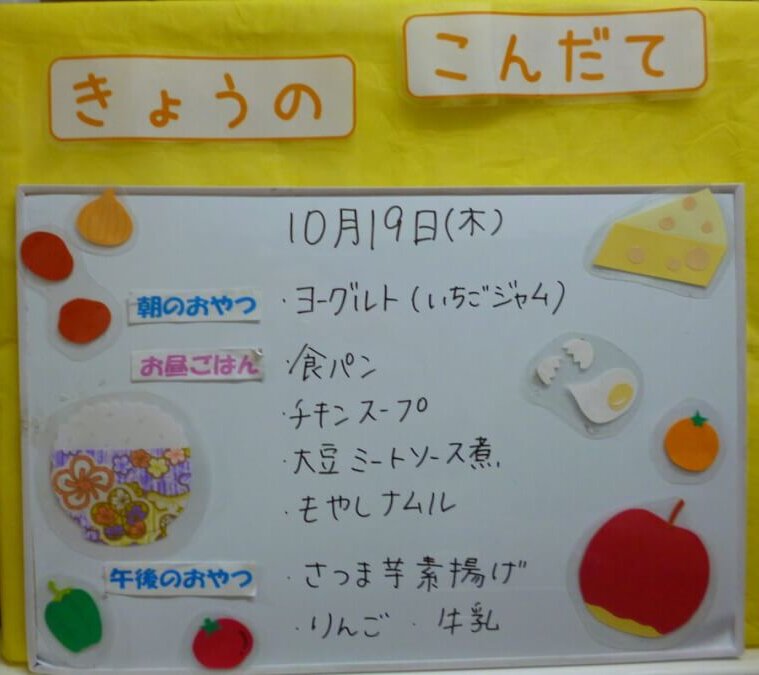 きょうの こんだて
10月19日(木)
朝のおやつ ・ヨーグルト(いちごジャム)
お昼ごはん ・食パン
・チキンスープ
・大豆ミートソース煮
・もやしナムル
午後のおやつ ・さつま芋素揚げ
・りんご ・牛乳